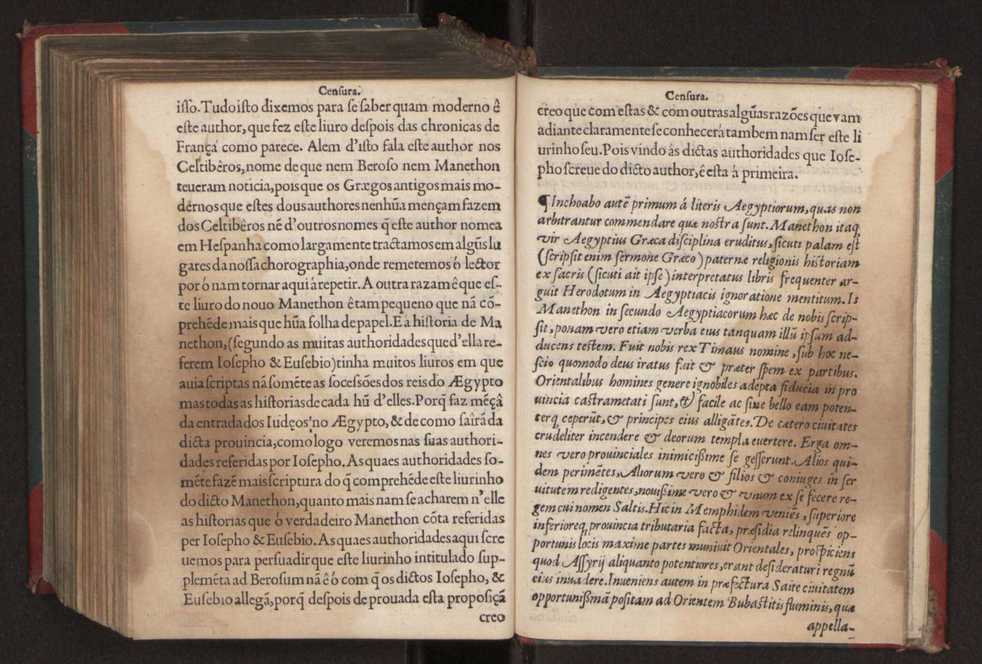 Censura.
isso. Tudo isto dixemos para se saber quam moderno ê
este author, que fez este liuro despois das chronicas de
França como parece. Alem d'isto fala este author nos
Celtibêros, nome de que nem Beroso nem Manethon
teueram noticia, pois que os Grægos antigos mais mo-
dérnos que estes dous authores nenhũa mençam fazem
dos Celtibêros nẽ d'outros nomes q̃ este author nomea
em Hespanha como largamente tractamos em algũs lu
gares da nossa chorographia, onde remetemos ó lector
por ó nam tornar aqui à repetir. A outra razam ê que es-
te liuro do nouo Manethon ê tam pequeno que nã cõ-
prehẽde mais que hũa folha de papel. E à historia de Ma
nethon, (segundo as muitas authoridades que d'ella re-
ferem Iosepho & Eusebio) tinha muitos liuros em que
auia scriptas nã somẽte as socessões dos reis do Ægypto
mas todas as historias de cada hũ d'elles. Porq̃ faz mẽçã
da entrada dos Iudęos no Ægypto, & de como sairã da
dicta prouincia, como logo veremos nas suas authori-
dades referidas por Iosepho. As quaes authoridades so-
mẽte fazẽ mais scriptura do q̃ comprehẽde este liurinho
do dicto Manethon, quanto mais nam se acharem n'elle
as historias que ó verdadeiro Manethon cõta referidas
per Iosepho & Eusebio. As quaes authoridades aqui scre
uemos para persuadir que este liurinho intitulado sup-
plemẽta ad Berosum nã ê ó com q̃ os dictos Iosepho, &
Eusebio allegã, porq̃ despois de prouada esta proposiçã
creo
Censura.
creo que com estas & com outras algũas razões que vam
adiante claramente se conhecerá tambem nam ser este li
urinho seu. Pois vindo âs dictas authoridades que Iose-
pho screue do dicto author, ê esta à primeira.
¶ Inchoabo autẽ primum á literis Aegyptiorum, quas non
arbitrantur commendare quæ nostra sunt. Manethon itaq;
vir Aegyptius Græca disciplina eruditus, sicuti palam est
(scripsit enim sermone Græco) paternæ religionis historiam
ex sacris (sicuti ait ipse) interpretatus libris frequenter ar-
guit Herodotum in Aegyptiacis ignoratione mentitum. Is
Manethon in secundo Aegyptiacorum hæc de nobis scrip-
sit, ponam vero etiam verba eius tanquam illũ ipsam ad-
ducens testem. Fuit nobis rex Timaus nomine, sub hoc ne-
scio quomodo deus iratus fuit & præter spem ex partibus.
Orientalibus homines genere ignobiles adepta fiducia in pro
uincia castrametati sunt, & facile ac sine bello eam poten-
terq; ceperũt, & principes eius alligãtes. De cætero ciuitates
crudeliter incendere & deorum templa euertere. Erga om-
nes vero prouinciales inimicißime se gesserunt. Alios qui-
dem perimẽtes, Aliorum vero & filios & coniuges in ser
uitutem redigentes, nouißime vero & vnum ex se fecere re-
gem cui nomen Saltis. Hic in Memphidem veniẽs, superiore
inferioreq; prouincia tributaria facta, præsidia relinquẽs op-
portunis locis maxime partes muniuit Orientales, prospiciens
quod Assyrij aliquanto potentiores, erant desideraturi regnũ
eius inuadere. Inueniens autem in præfectura Saite ciuitatem
opportunißmã positam ad Orientem Bubastitis fluminis, quæ
appella-